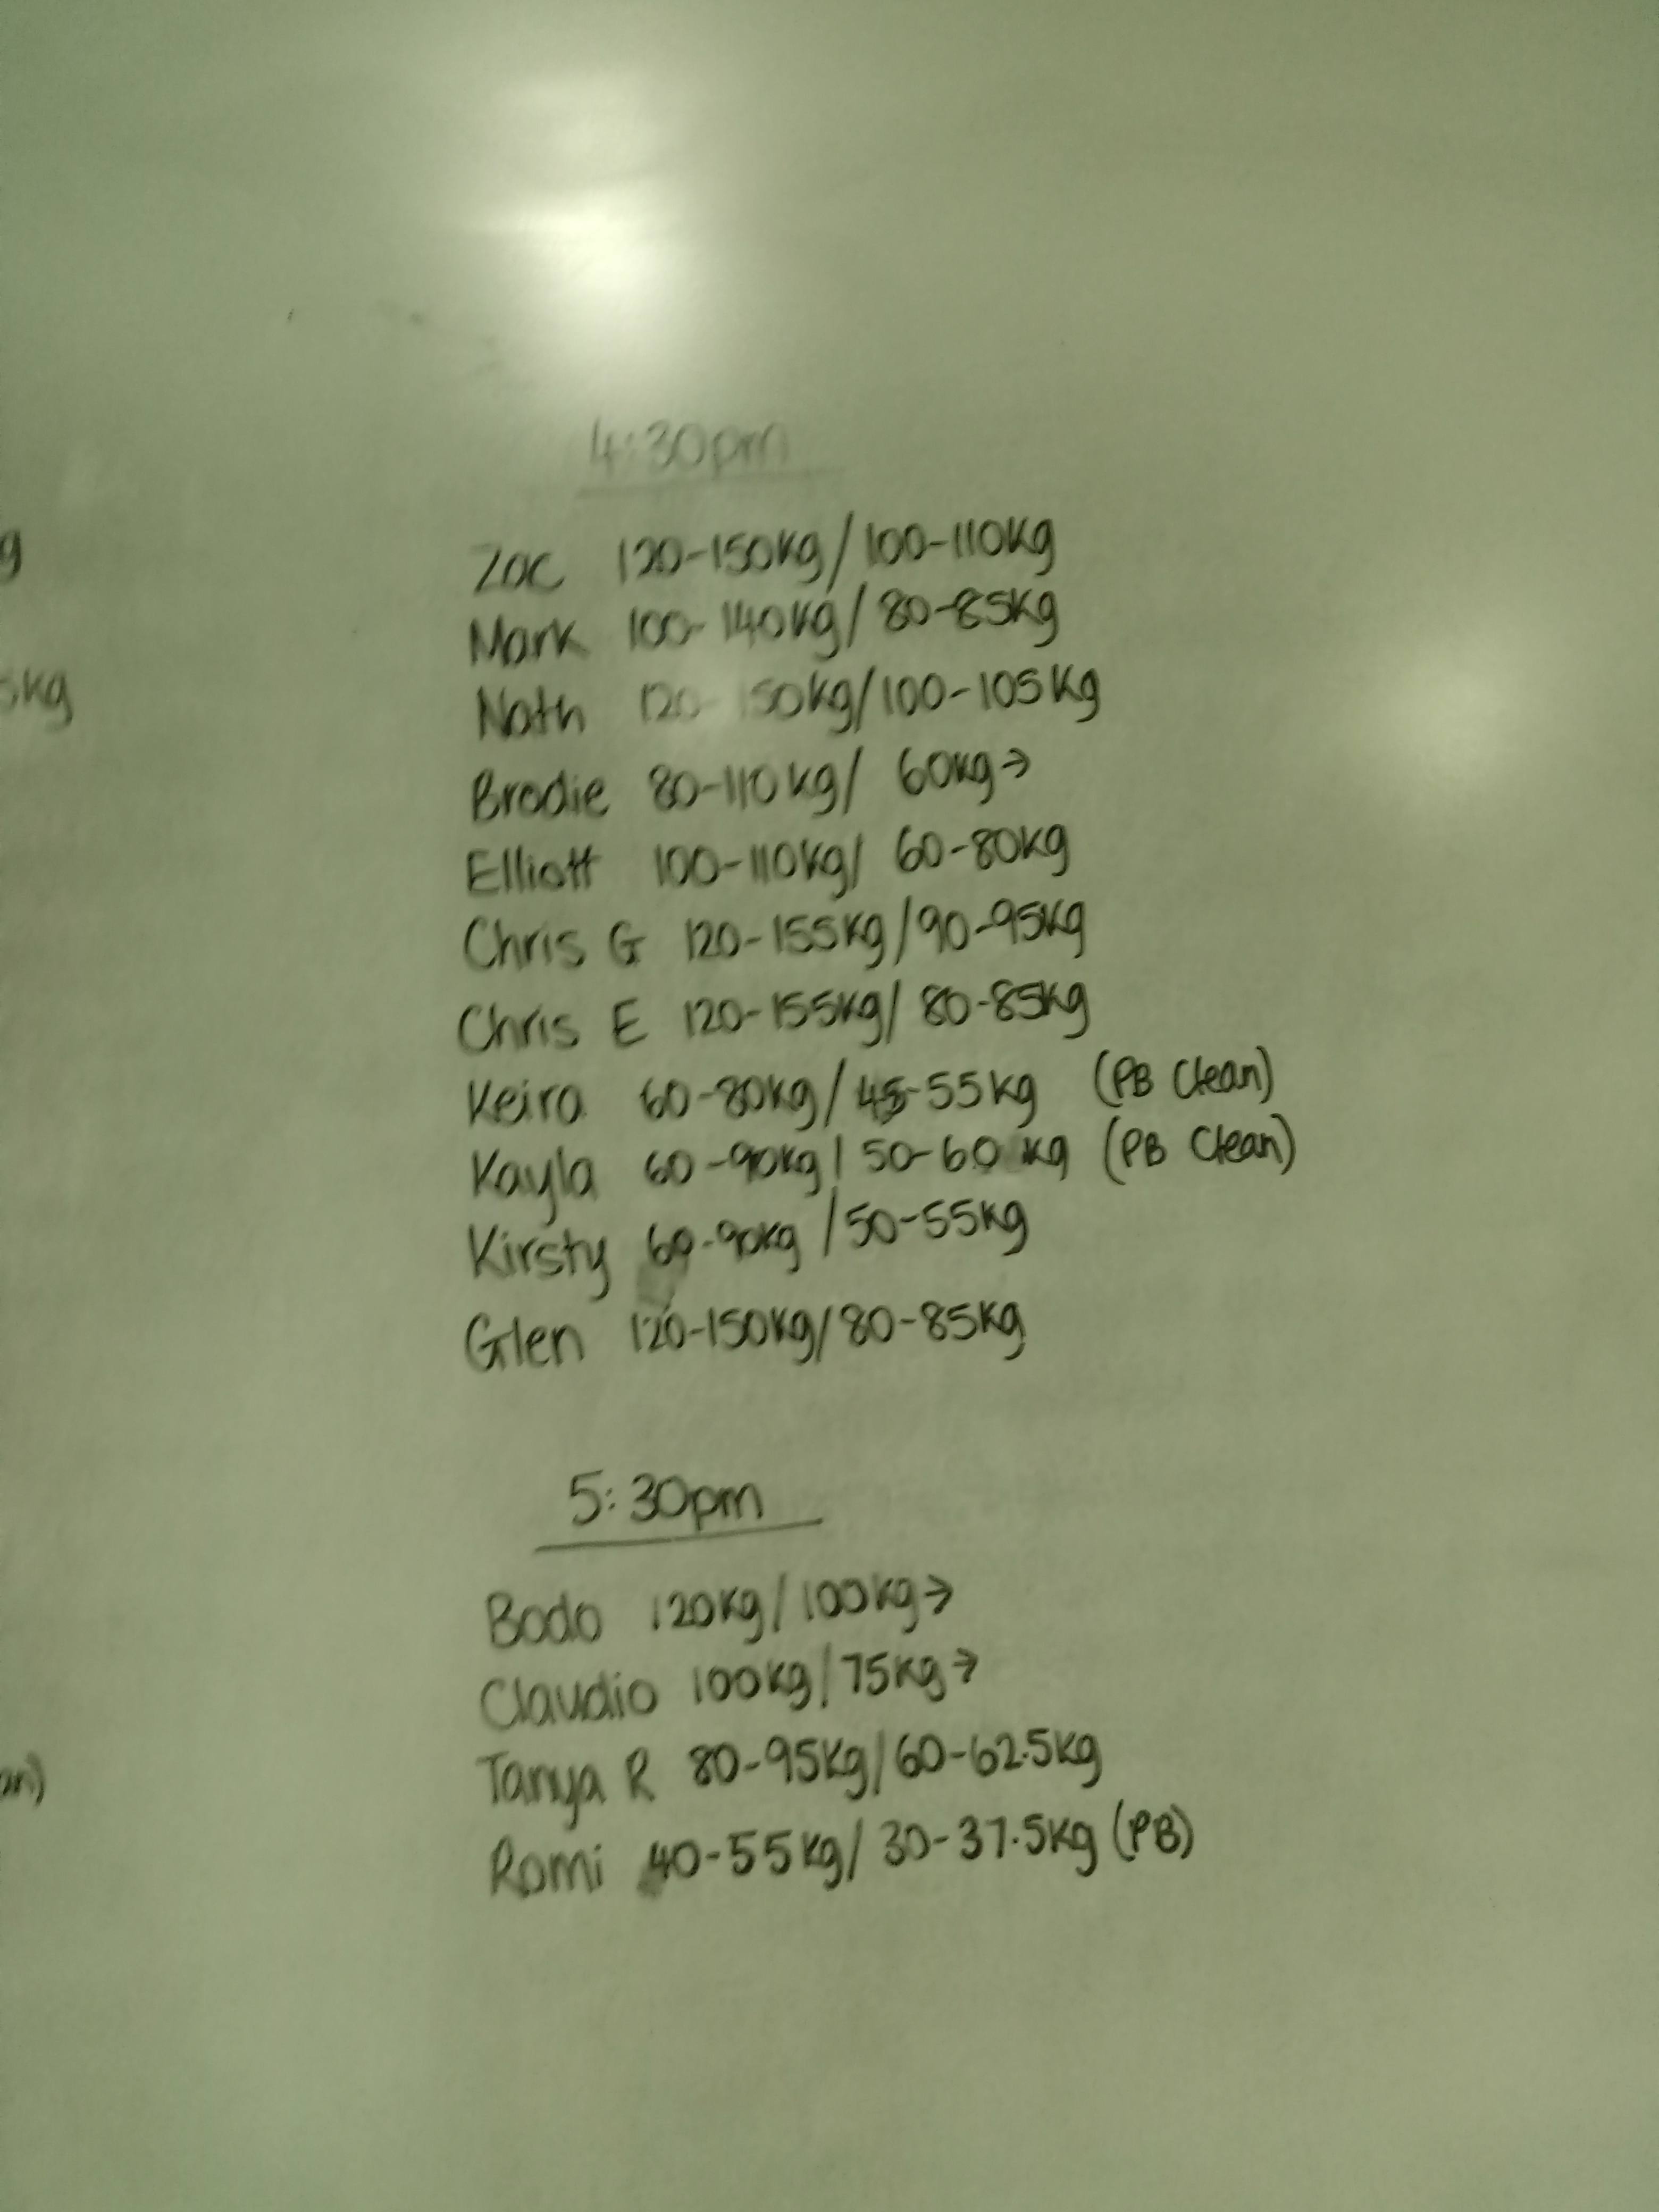 4:30pm
Zac 120-150kg/100-110kg
Mark 100-140kg/80-85kg
Nath 120-150kg/100-105kg
Brodie 80-110kg/ 60kg→
Elliott 100-110kg/ 60-80kg
Chris G 120-155kg/90-95kg
Chris E 120-155kg/ 80-85kg
Keira 60-80kg/45-55kg (PB Clean)
Kayla 60-90kg/50-60kg (PB Clean)
Kirsty 60-90kg/50-55kg
Glen 120-150kg/80-85kg
5:30pm
Bodo 120kg/100kg→
Claudio 100kg/75kg→
Tanya R 80-95kg/60-62.5kg
Romi 40-55kg/ 30-37.5kg (PB)